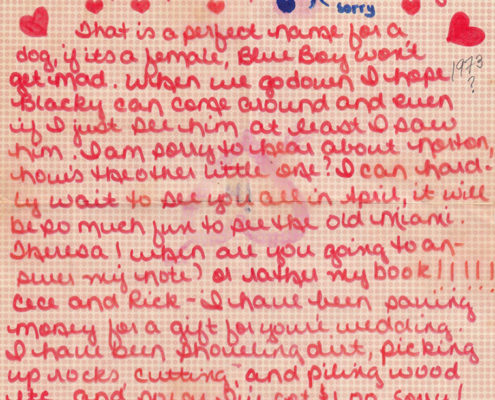 sorry
That is a perfect name for a
dog, if its a female, Blue Boy won't
get mad. When we go down I hope
1973
?
Blacky can come around and even
if I just see him at least I saw
him. I am sorry to hear about norton,
how's the other little one? I can hard-
ly wait to see you all in April, it will
be so much fun to see the old Miami.
Theresa! when are you going to an-
swer my note? or rather my book!!!!!
Cece and Rick - I have been saving
money for a gift for your wedding.
I have been shoveling dirt, picking
up rocks cutting and piling wood
etc. and